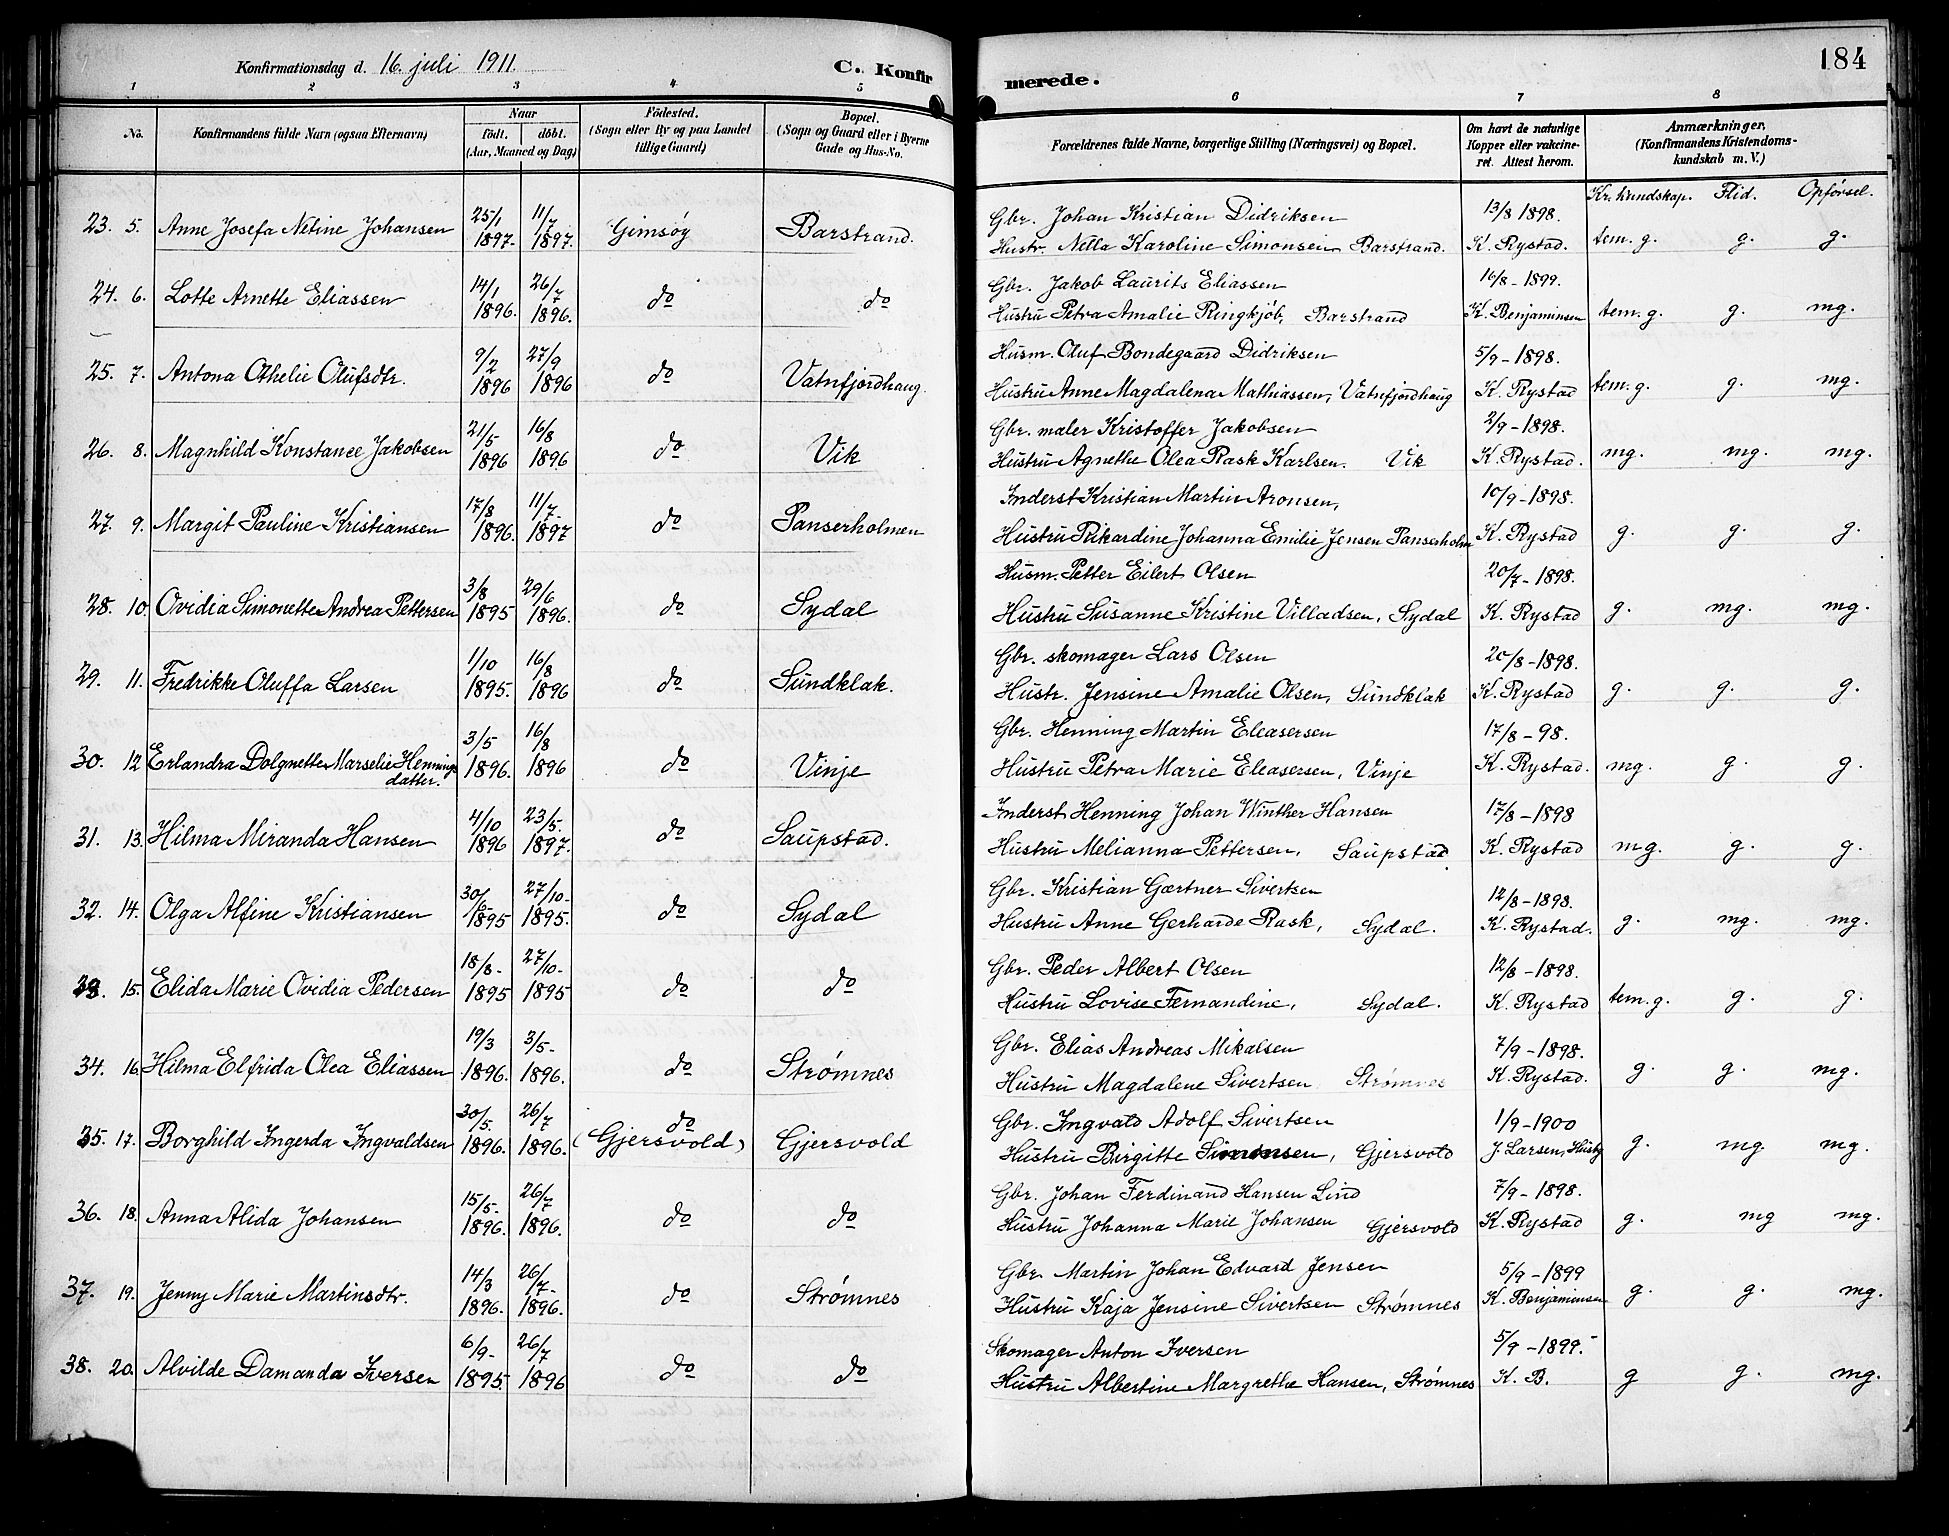 Konfirmationsdag d. 16. juli 1911. C. Konfirmerede. 184
1 2 3 4 5 6 7 8
No. Konfirmandens fulde Navn (ogsaa Efternavn) Naar født. døbt. (Aar, Maaned og Dag) Fødested. (Sogn eller By og paa Landet tillige Gaard) Bopæl. (Sogn og Gaard eller i Byerne Gade og Hus-No. Forældrenes fulde Navne, borgerlige Stilling (Næringsvei) og Bopæl. Om havt de naturlige Kopper eller vakcineret. Attest herom. Anmærkninger. (Konfirmandens Kristendomskundskab m. V.)
Kr. kundskap. Flid. Opførsel.
23. 5. Anne Josefa Netine Johansen 25/1 1897. 11/7 1897. Gimsøy Barstrand. Gbr. Johan Kristian Didriksen 13/8 1898.
Hustr. Nella Karoline Simonsen Barstrand. K. Rystad. tem. g. g. g.
24. 6. Lotte Arnette Eliassen 14/1 1896. 26/7 1896. do do Gbr. Jakob Laurits Eliassen 16/8 - 1899.
Hustru Petra Amalie Ringkjøb, Barstrand K. Benjaminsen tem. g. g. mg.
25. 7. Antona Othelie Olufsdtr. 9/2 1896 27/9 1896 do Vatnfjordhaug. Husm. Oluf Bondegaard Didriksen 5/9 - 1898.
Hustru Anne Magdalena Mathiassen, Vatnfjordhaug K. Rystad tem. g. g. mg.
26. 8. Magnhild Konstance Jakobsen 21/5 1896 16/8 1896 do Vik Gbr. maler Kristoffer Jakobsen 2/9 - 1898.
Hustru Agnethe Olea Rask Karlsen. Vik K. Rystad. mg. mg. mg.
27. 9. Margit Pauline Kristiansen 17/8 1896. 11/7 1897 do Panserholmen Inderst Kristian Martin Aronsen, 10/9 - 1898.
Hustru Rikardine Johanna Emilie Jensen Panserholm K. Rystad g. g. g.
28. 10. Ovidia Simonette Andrea Pettersen 3/8 1895 29/6 1896. do Sydal Husm. Petter Eilert Olsen 20/7 - 1898.
Hustru Susanne Kristine Villadsen, Sydal K. Rystad g. mg. mg.
29. 11. Fredrikke Oluffa Larsen 1/10 1895. 16/8 1896 do Sundklak. Gbr. skomager Lars Olsen 20/8 - 1898.
Hustr. Jensine Amalie Olsen, Sundklak K. Rystad g. g. g.
30. 12 Erlandra Dolgnette Marselie Hennings datter. 3/5 1896. 16/8 1896 do Vinje Gbr. Henning Martin Eleasersen 17/8 - 98.
Hustru Petra Marie Eleasersen, Vinje K. Rystad. mg. g. g.
31. 13. Hilma Miranda Hansen 4/10 1896 23/5. 1897. do Saupstad. Inderst Henning Johan Winther Hansen 17/8 - 1898
Hustru Melianna Pettersen, Saupstad K. Rystad mg. g. g.
32. 14. Olga Alfine Kristiansen 30/6- 1895 27/10- 1895. do Sydal Gbr. Kristian Gærtner Sivertsen 12/8 - 1898.
Hustru Anne Gerharde Rask, Sydal. K. Rystad. g. mg. mg.
33. 15. Elida Marie Ovidia Pedersen 18/8- 1895 27/10- 1895 do do Gbr. Peder Albert Olsen 12/8 - 1898.
Hustru Lovise Fernandine, Sydal. K. Rystad tem. g. g. g.
34. 16. Hilma Elfrida Olea Eliassen 19/3 1896. 3/5- 1896. do Strømnes Gbr. Elias Andreas Mikalsen 7/9 - 1898.
Hustru Magdalene Sivertsen Strømnes K. Rystad. g. g. mg.
35. 17. Borghild Ingerda Ingvaldsen 30/5- 1896. 26/7 1896. do (Gjersvold) Gjersvold Gbr. Ingvald Adolf Sivertsen 1/9 - 1900
Hustru Birgitte Simonsen, Gjersvold J. Larsen, Husby g. mg mg.
36. 18. Anna Alida Johansen 15/5- 1896. 26/7 1896. do do Gbr. Johan Ferdinand Hansen Lind 7/9 - 1898.
Hustru Johanna Marie Johansen Gjersvold K. Rystad g. mg mg.
37. 19. Jenny Marie Martinsdtr. 14/3 1896. 26/7- 1896. do Strømnes Gbr. Martin Johan Edvard Jensen 5/9 - 1899
Hustru Kaja Jensine Sivertsen Strømnes K. Benjaminsen g. g. mg.
38. 20. Alvilde Damanda Iversen 6/9- 1895. 26/7 1896 do do Skomager Anton Iversen 5/9 - 1899.
Hustru Albertine Margrethe Hansen, Strømnes K. B. g g. mg.